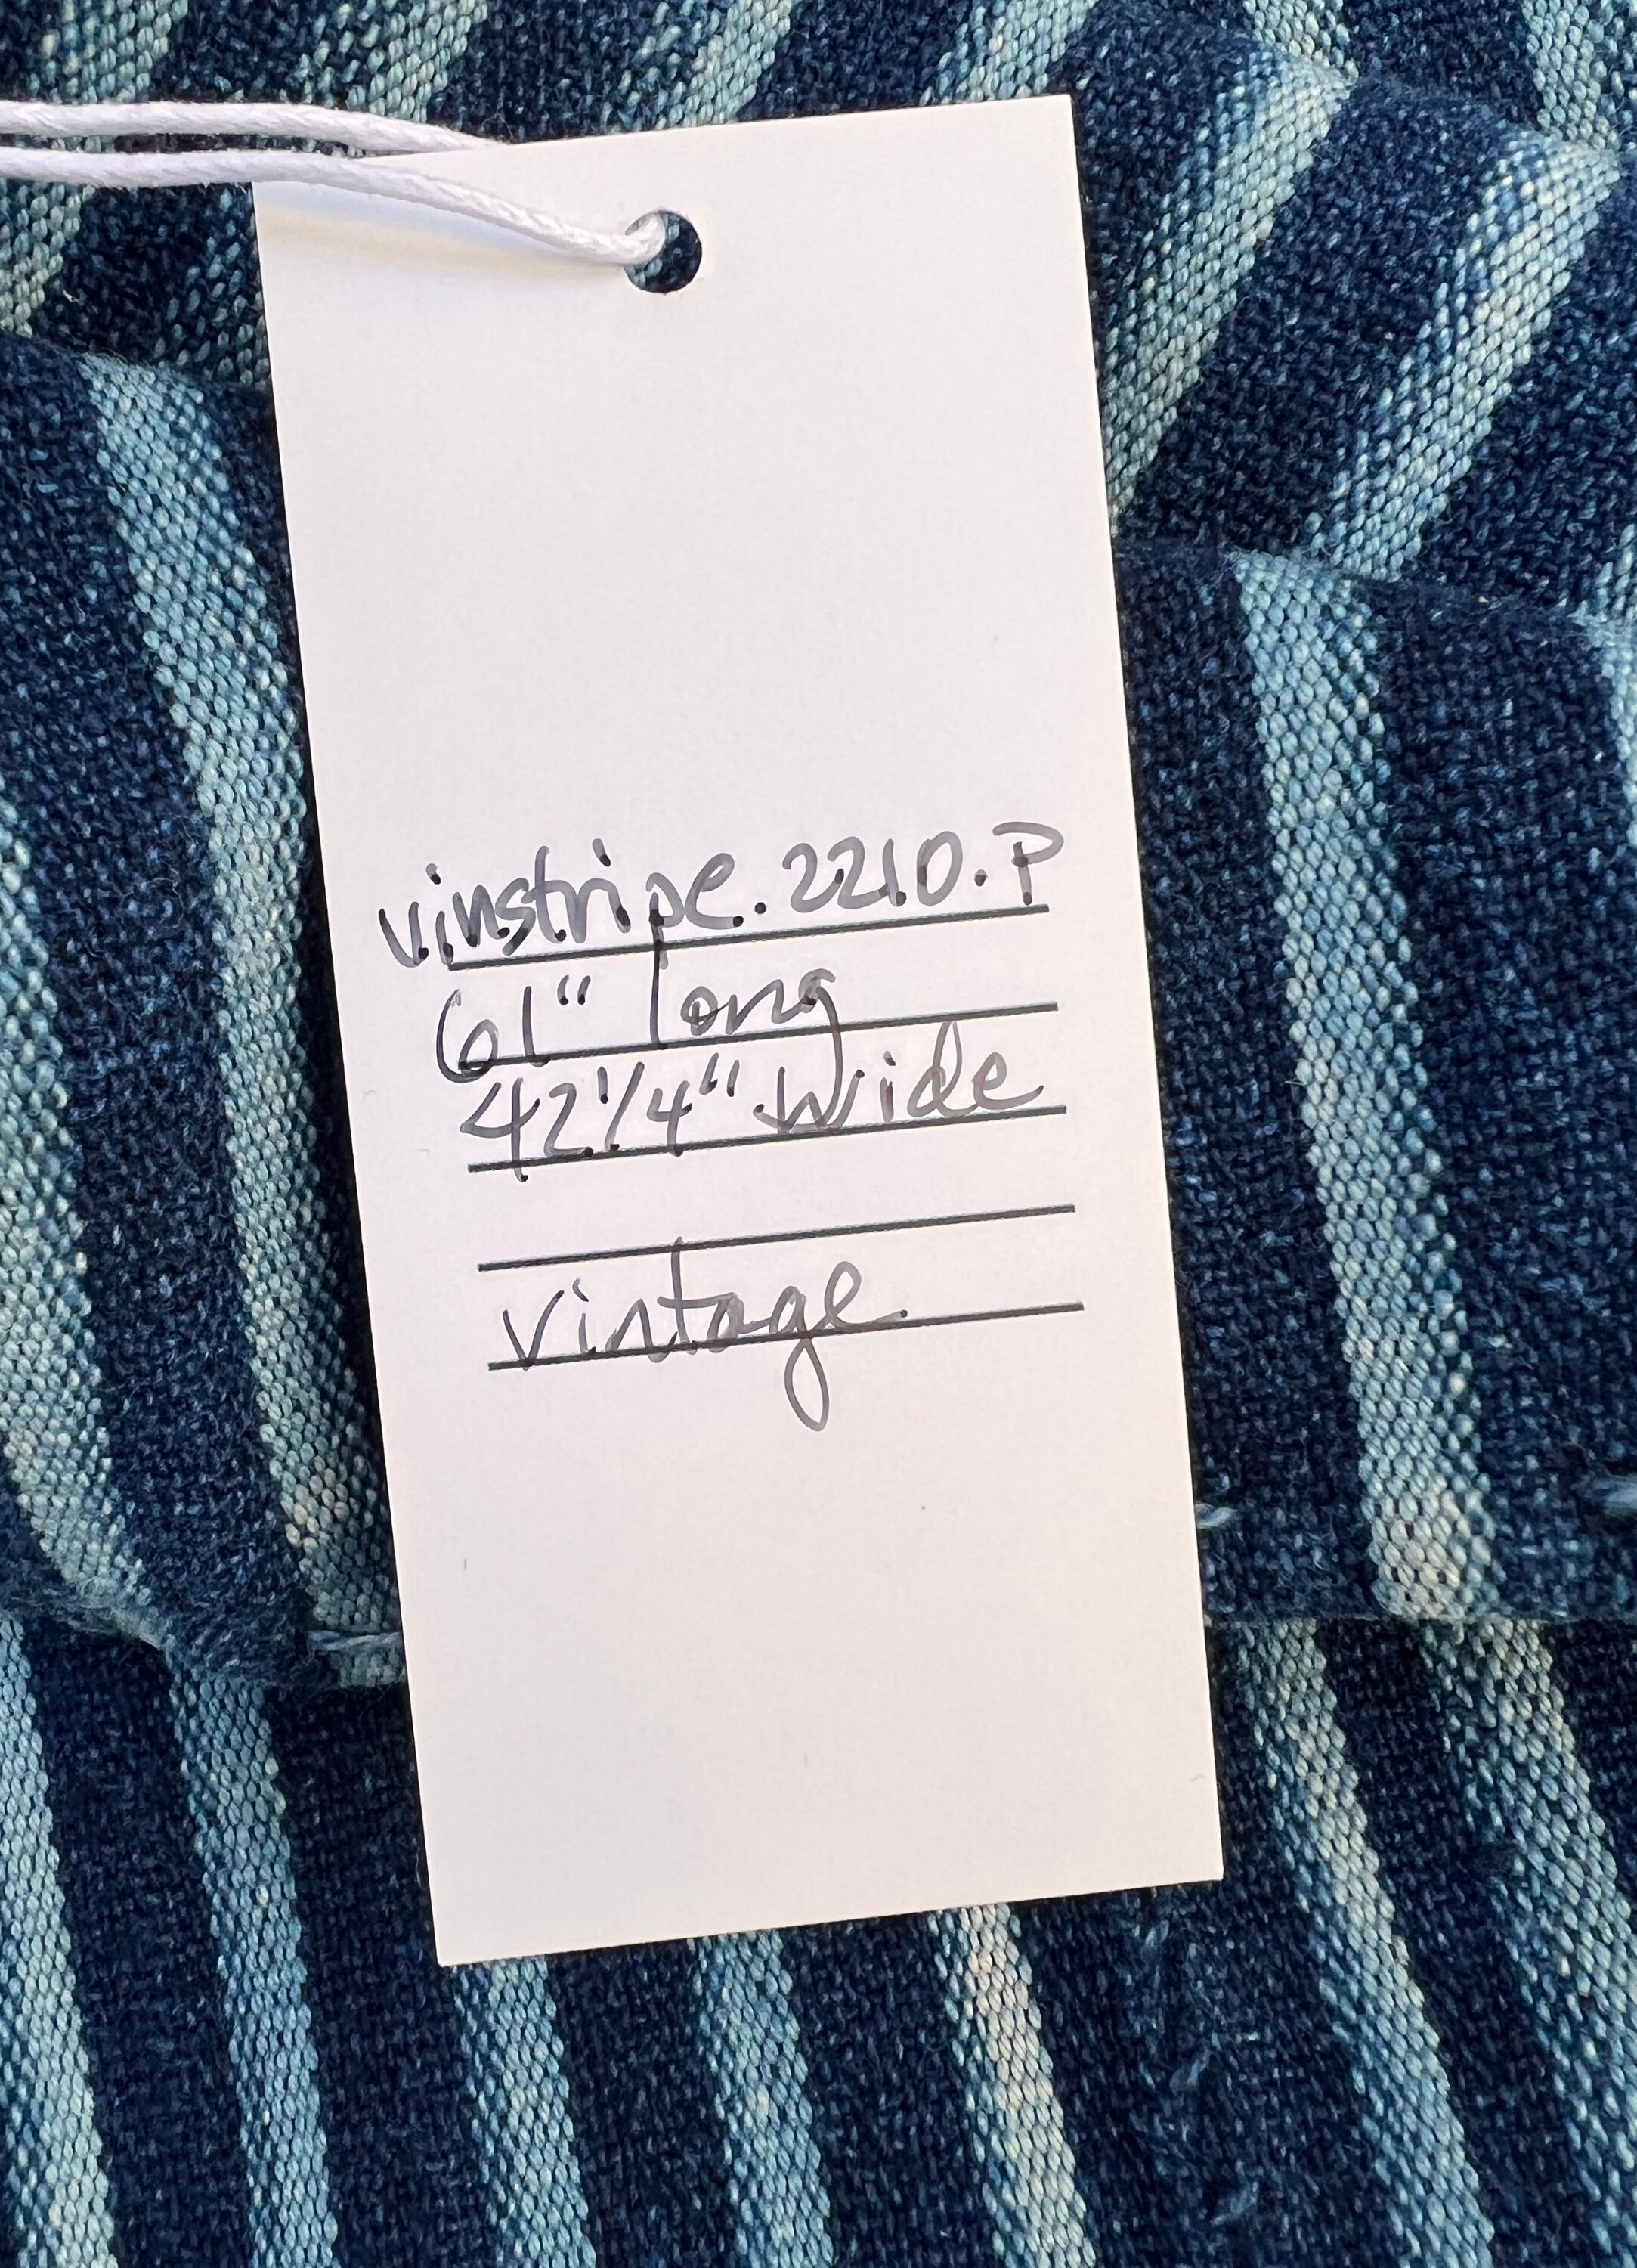 vinstripe.2210.P
61" long
42 1/4" wide
vintage